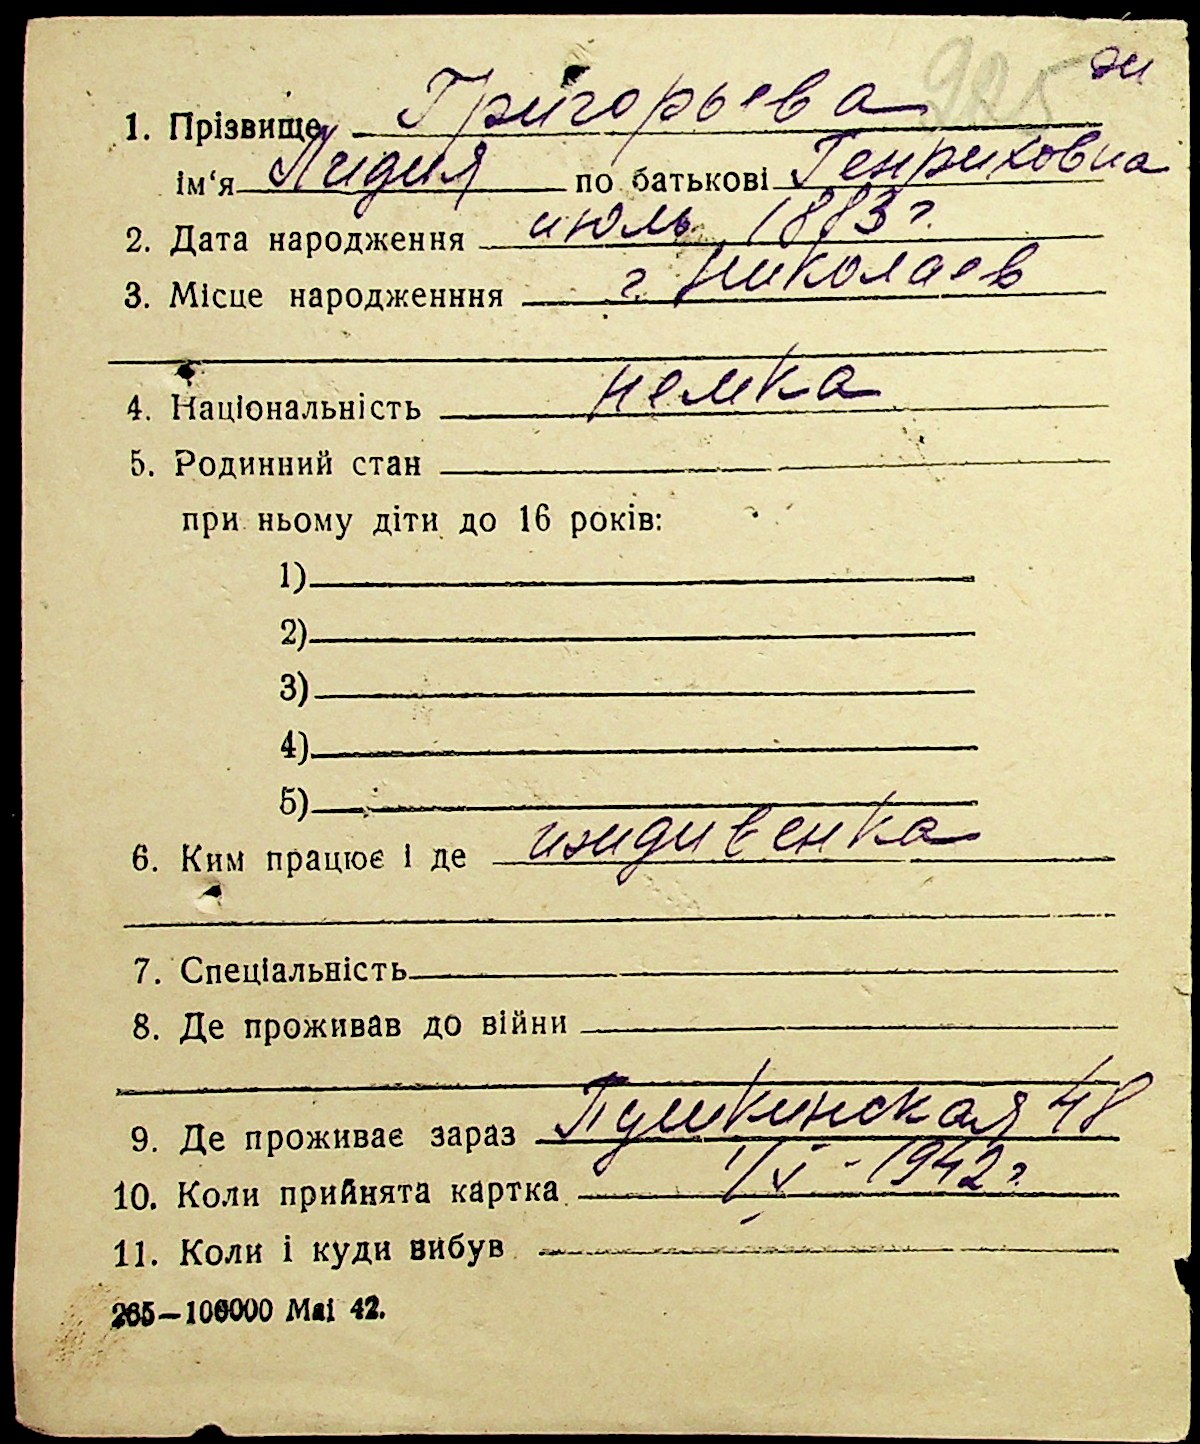 225 эи
1. Прізвище Григорьева
ім‘я Лидия по батькові Генриховна
2. Дата народження июль 1883 г.
3. Місце народженння г. Николаев
4. Національність немка
5. Родинний стан
при ньому діти до 16 років:
1)
2)
3)
4)
5)
6. Ким працює і де иждивенка
7. Спеціальність
8. Де проживав до війни
9. Де проживає зараз Пушкинская 48
10. Коли прийнята картка 1/X - 1942 г.
11. Коли і куди вибув
265—100000 Маі 42.